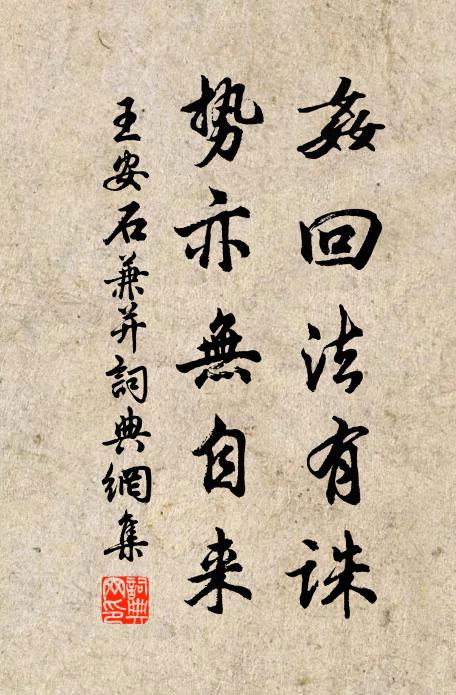 姦回法有誅
势亦無自来
王安石兼并詞典網集
詞典網印